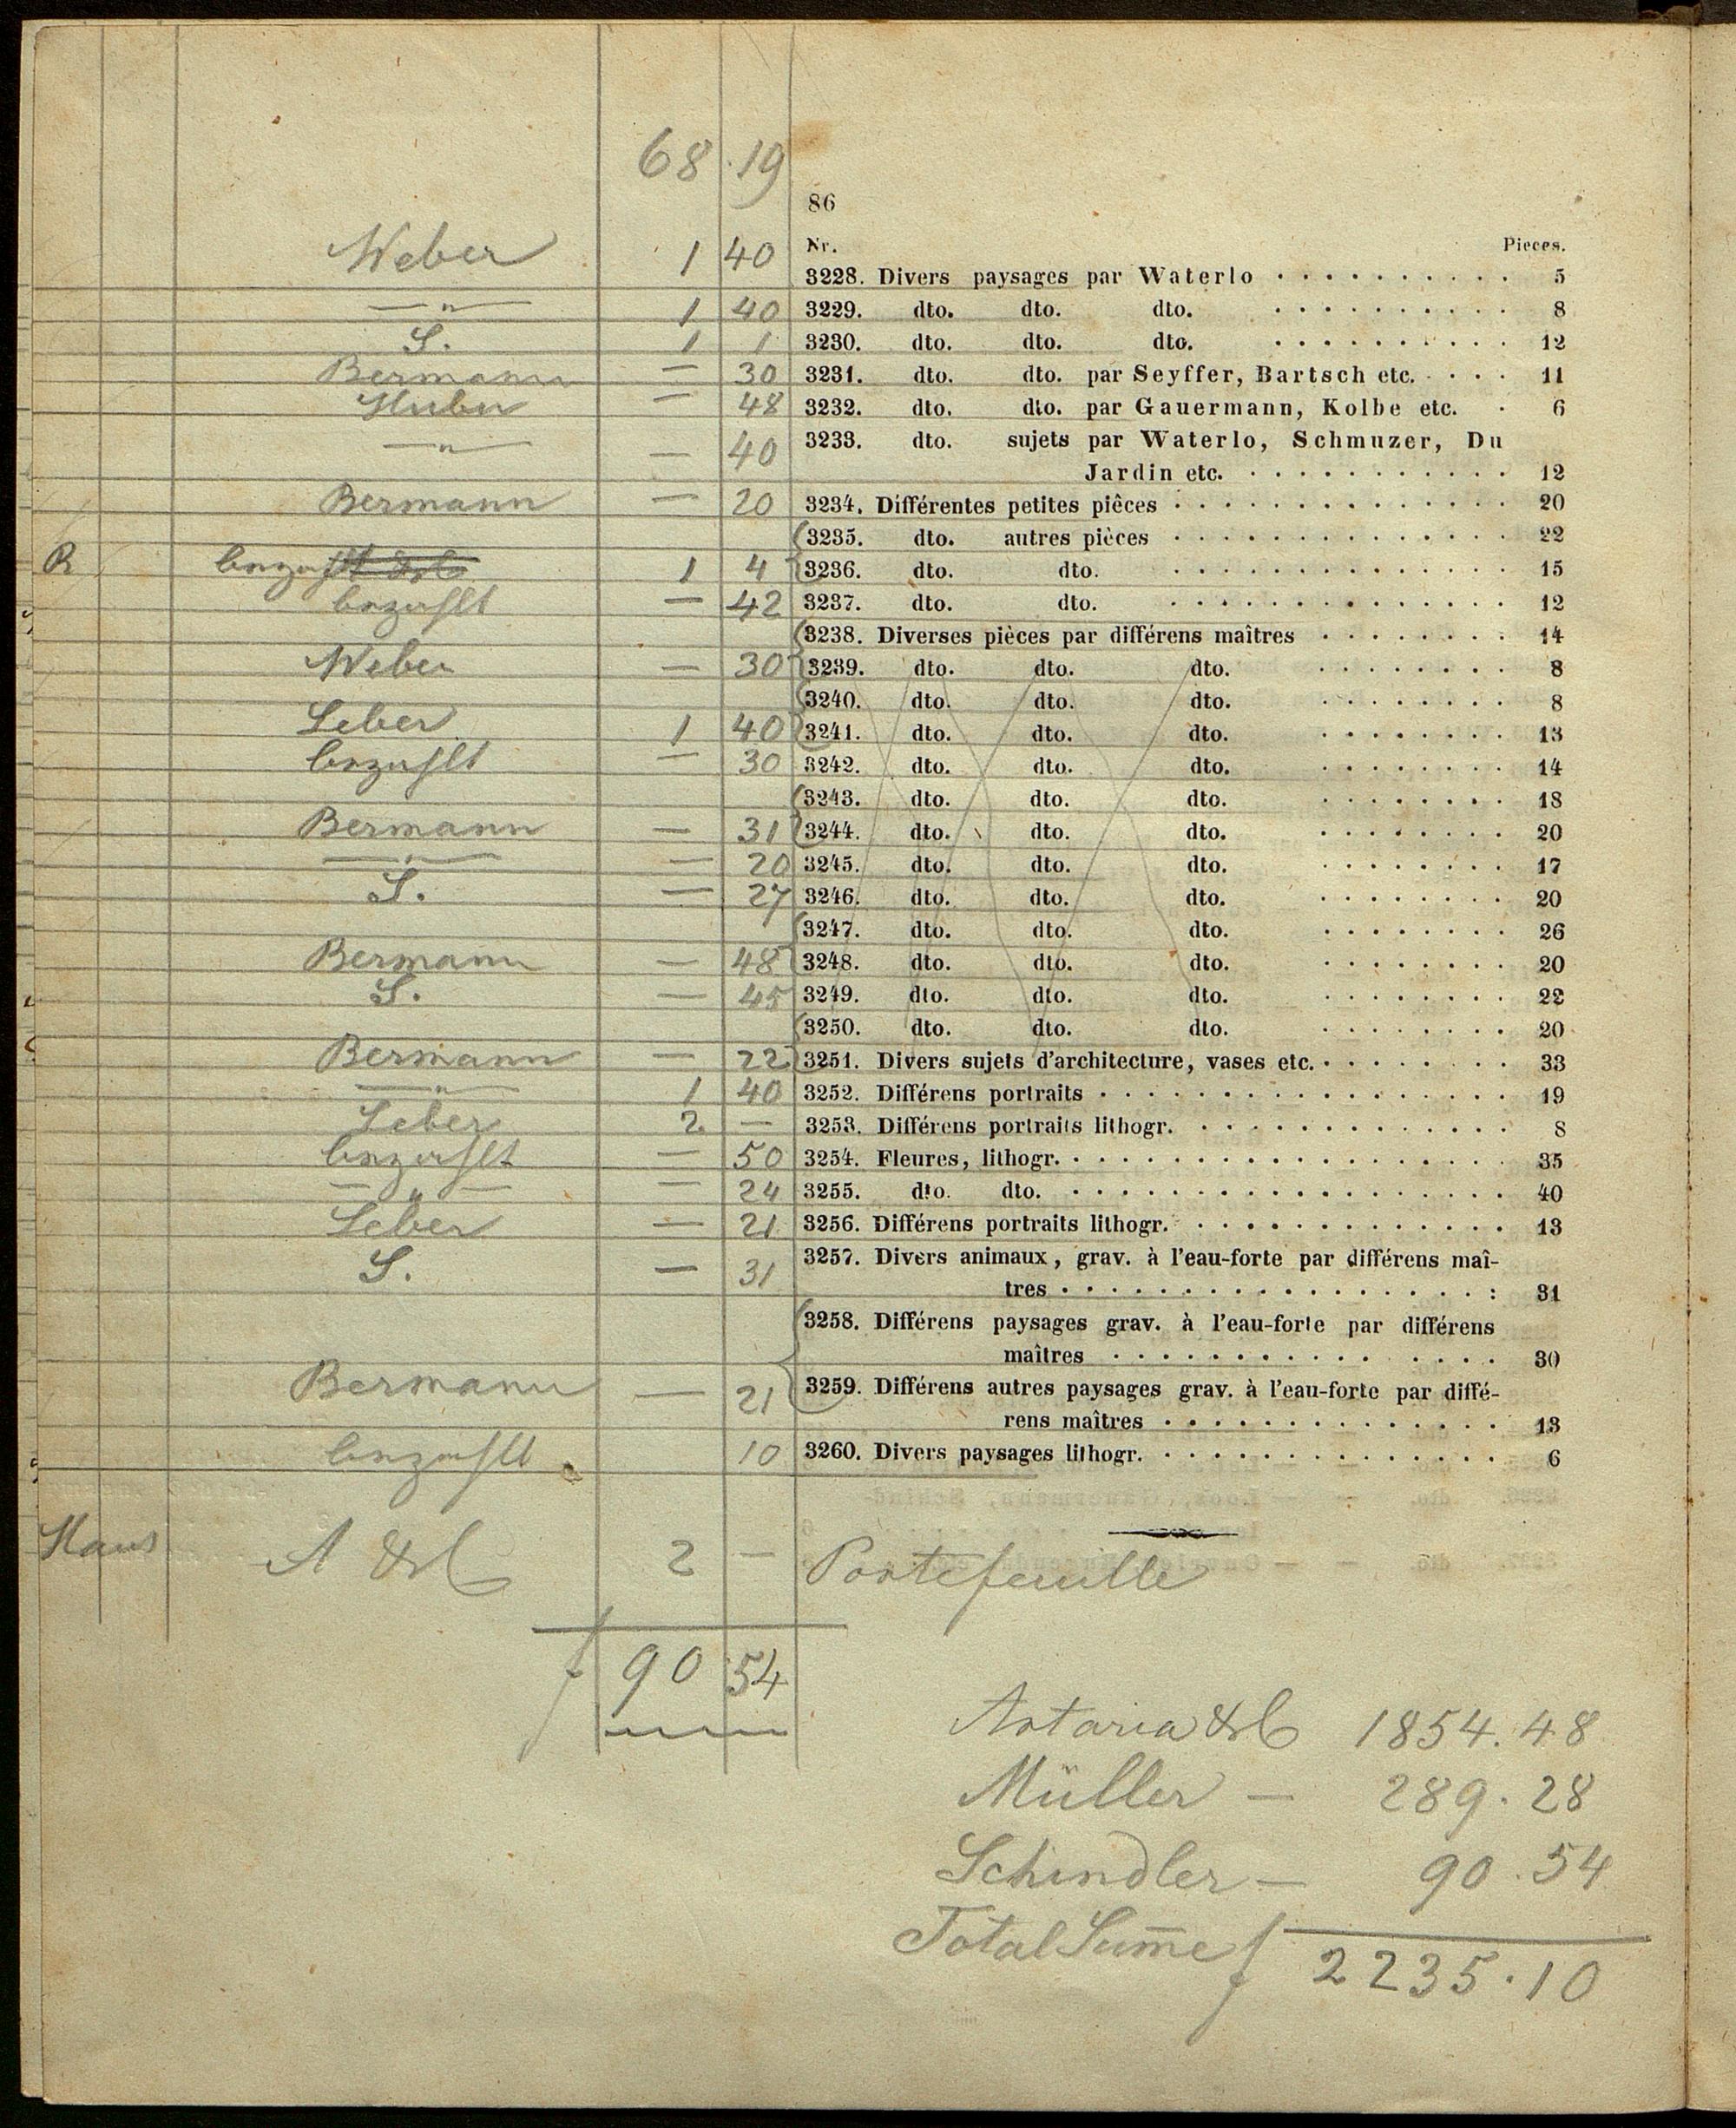 68 . 19
86
Nr. Pieces.
Weber 1 40 3228. Divers paysages par Waterlo . . . . . . . . . . 5
— " — 1 40 3229. dto. dto. dto. . . . . . . . . . . 8
S. 1 1 3230. dto. dto. dto. . . . . . . . . . . 12
Bermann — 30 3231. dto. dto. par Seyffer, Bartsch etc. . . . . 11
Huber — 48 3232. dto. dto. par Gauermann, Kolbe etc. . 6
— " — — 40 3233. dto. sujets par Waterlo, Schmuzer, Du
Jardin etc. . . . . . . . . . . . 12
Bermann — 20 3234. Différentes petites pièces . . . . . . . . . . . . . . 20
3235. dto. autres pièces . . . . . . . . . . . . . . 22
R bezahlt 1 4 3236. dto. dto. . . . . . . . . . . . . . . 15
bezahlt — 42 3237. dto. dto. . . . . . . . . . . . . . . 12
3238. Diverses pièces par différens maîtres . . . . . . . . 14
Weber — 30 3239. dto. dto. dto. . . . . . . . . 8
3240. dto. dto. dto. . . . . . . . . 8
Leber 1 40 3241. dto. dto. dto. . . . . . . . . 13
bezahlt — 30 3242. dto. dto. dto. . . . . . . . . 14
3243. dto. dto. dto. . . . . . . . . 18
Bermann — 31 3244. dto. dto. dto. . . . . . . . . 20
— " — — 20 3245. dto. dto. dto. . . . . . . . . 17
S. — 27 3246. dto. dto. dto. . . . . . . . . 20
3247. dto. dto. dto. . . . . . . . . 26
Bermann — 48 3248. dto. dto. dto. . . . . . . . . 20
S. — 45 3249. dto. dto. dto. . . . . . . . . 22
3250. dto. dto. dto. . . . . . . . . 20
Bermann — 22 3251. Divers sujets d'architecture, vases etc. . . . . . . . . 33
— " — 1 40 3252. Différens portraits . . . . . . . . . . . . . . . . . 19
Leber 2 — 3253. Différens portraits lithogr. . . . . . . . . . . . . . 8
bezahlt — 50 3254. Fleures, lithogr. . . . . . . . . . . . . . . . . . . 35
— " — — 24 3255. dto. dto. . . . . . . . . . . . . . . . . . . 40
Leber — 21 3256. Différens portraits lithogr. . . . . . . . . . . . . . 13
S. — 31 3257. Divers animaux, grav. à l'eau-forte par différens maî-
tres . . . . . . . . . . . . . . . . . : 31
3258. Différens paysages grav. à l'eau-forte par différens
maîtres . . . . . . . . . . . . . . . 30
Bermann — 21 3259. Différens autres paysages grav. à l'eau-forte par diffé-
rens maîtres . . . . . . . . . . . . . . 13
bezahlt 10 3260. Divers paysages lithogr. . . . . . . . . . . . . . . 6
Haus A & C 2 — Portefeuille
f 90 54
Artaria & C 1854.48
Müller — 289.28
Schindler — 90.54
Total Sum̄e f 2235.10